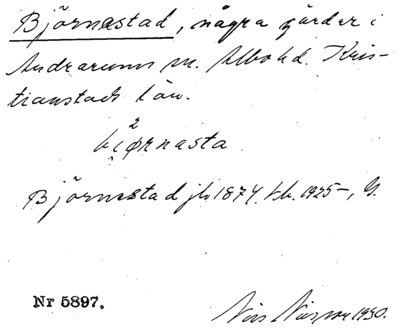 Björnastad, några gårder i
Andrarums sn. Albo hd. Kris-
tianstads län.
2
biørnasta
Björnastad jb 1874. kb. 1925-, G.
Nr 5897.
Nils Nilsson 1930.